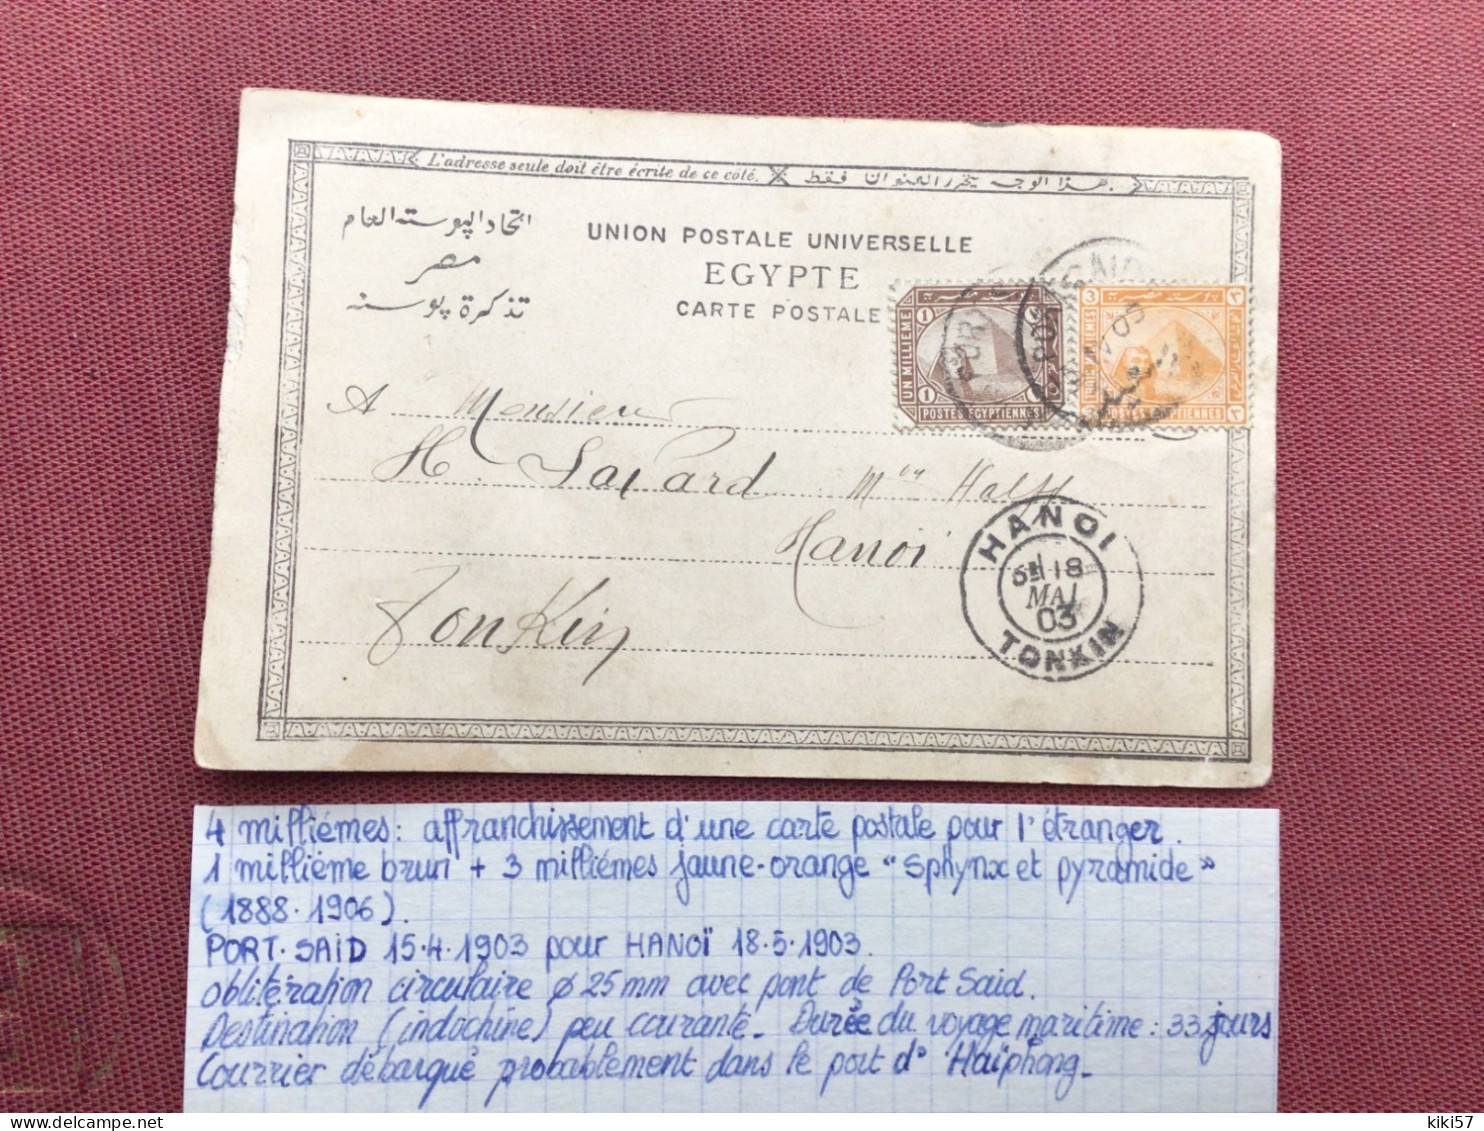 L'adresse seule doit être écrite de ce côté. هذا الوجه يحرر العنوان فقط.
اتحاد البوستة العام
مصر
تذكرة بوسته
UNION POSTALE UNIVERSELLE
EGYPTE
CARTE POSTALE
1 UN MILLIEME 1
1 POSTES EGYPTIENNES
3
SAID
A Monsieur
H. Halff
Hanoi
Tonkin
HANOI
18
MAI
03
TONKIN
4 milliémes: affranchissement d'une carte postale pour l'étranger.
1 milliéme brun + 3 milliémes jaune-orange "Sphynx et pyramide"
(1888-1906).
PORT-SAID 15-4-1903 pour HANOÏ 18-5-1903.
oblitération circulaire ø 25 mm avec pont de Port Said.
Destination (indochine) peu courante - Durée du voyage maritime: 33 jours
Courrier débarqué probablement dans le port d' Haïphong -
kiki57